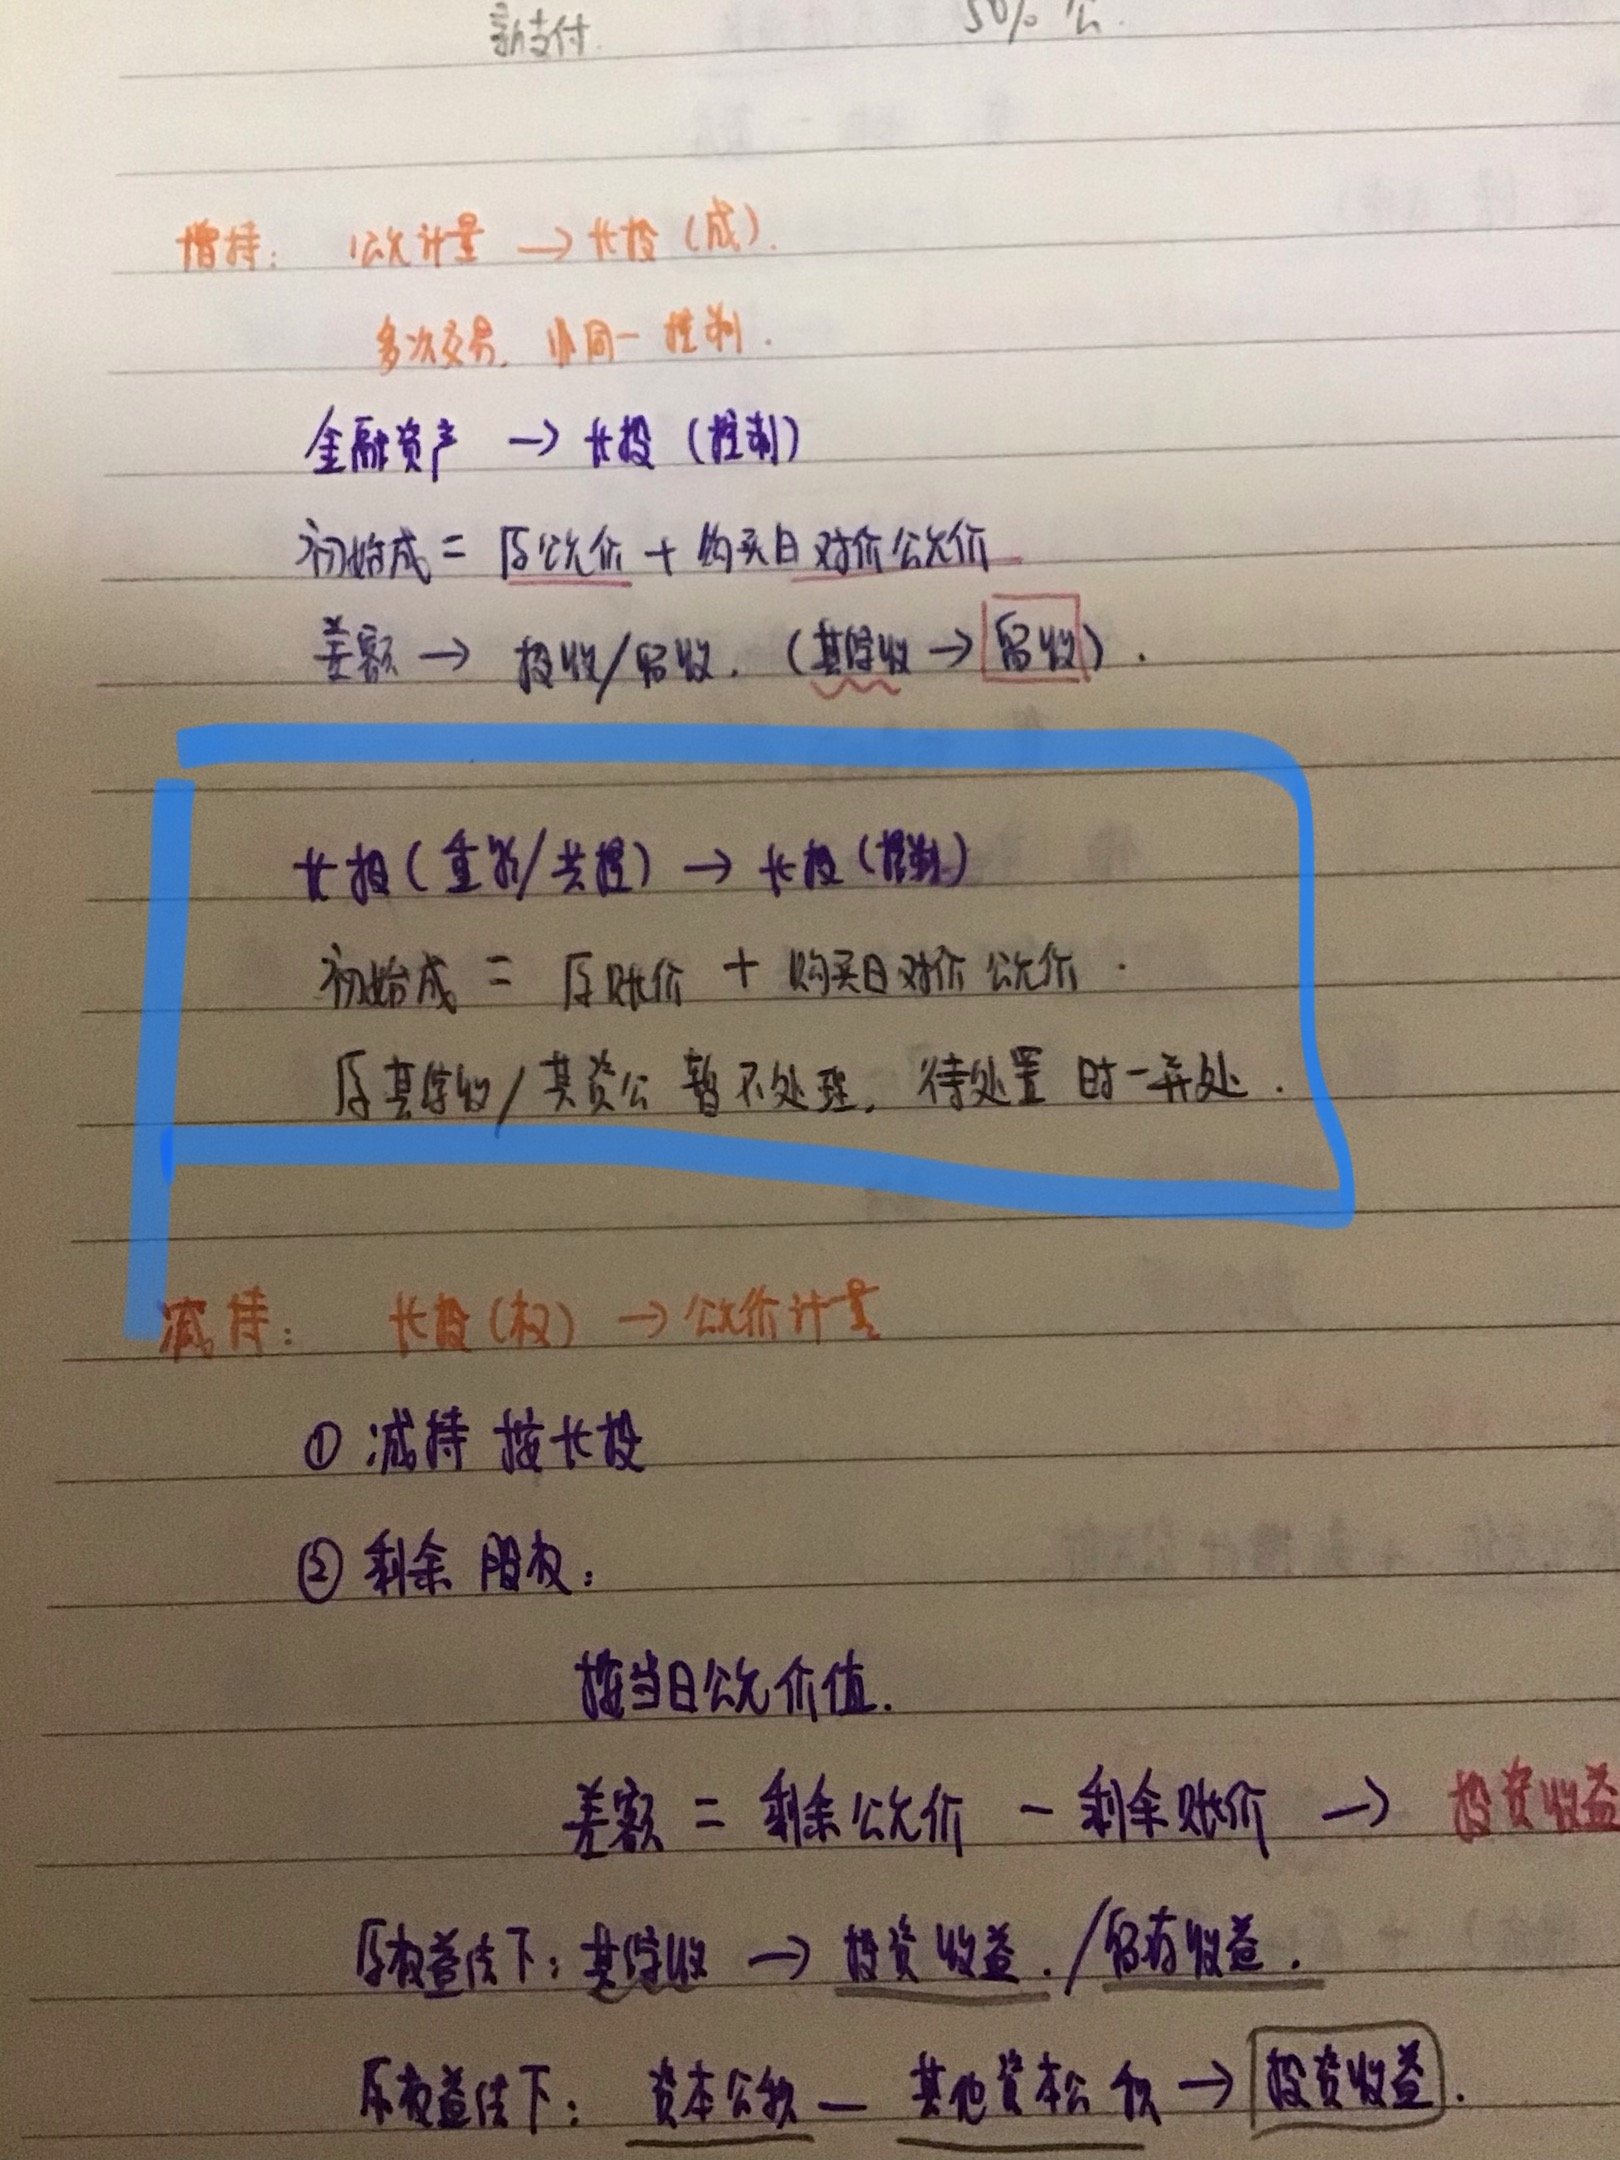 新支付. 50% 公.
增持: 公允计量 → 长投 (成).
多次交易, 非同一控制.
金融资产 → 长投 (控制)
初始成 = 原公允价 + 购买日对价公允价
差额 → 投收/留收. (其综收 → 留收).
长投 (重影/共控) → 长投 (控制)
初始成 = 原账价 + 购买日对价 公允价.
原其综收/其资公 暂不处理, 待处置 时一并处.
减持: 长投 (权) → 公允价计量
① 减持 按长投
② 剩余 股权:
按当日公允价值.
差额 = 剩余公允价 - 剩余账价 → 投资收益
原权益法下: 其综收 → 投资收益. /留存收益.
原权益法下: 资本公积 — 其他资本公积 → 投资收益.